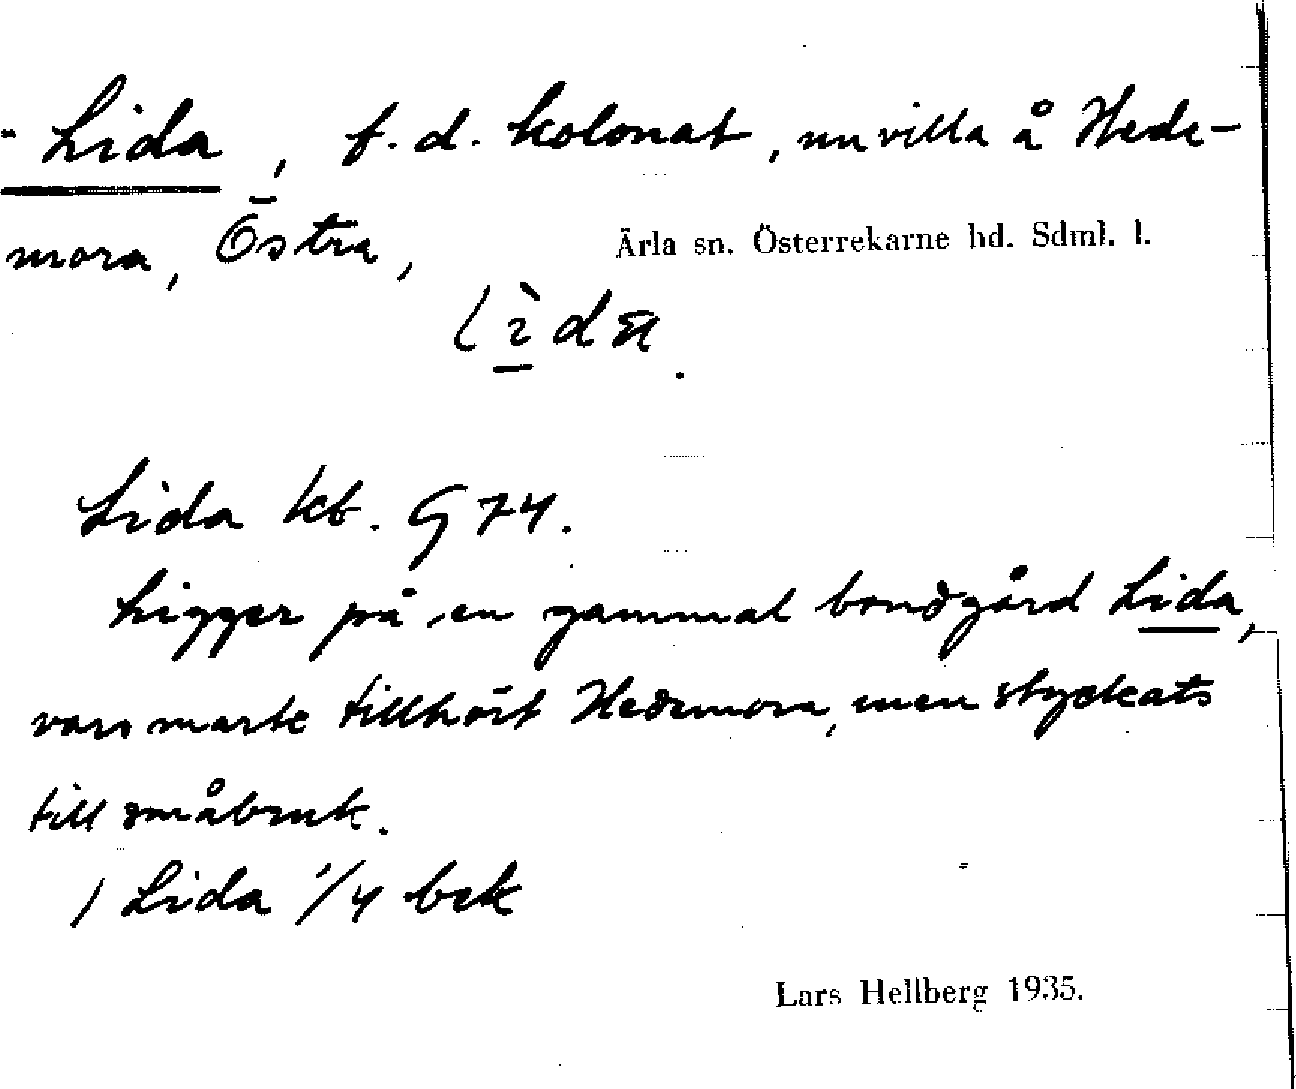 Lida, f. d. kolonat, nu villa å Hede-
mora, Östra,
Ärla sn. Österrekarne hd. Sdml. l.
Lida kb. G 74.
Ligger på en gammal bondgård Lida,
vars mark tillhört Hedemora, men styckats
till småbruk.
1 Lida 1/4 bek
Lars Hellberg 1935.